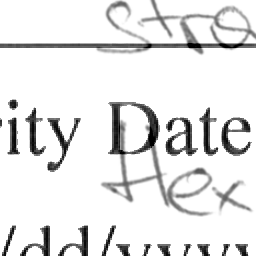 stra
ity Date
Hex
/dd/yyyy